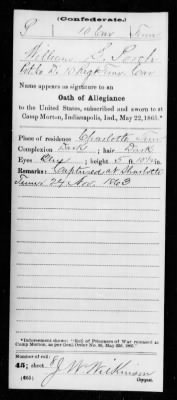 (Confederate.)
P 10 Cav Tenn
William S.
Co. 10 Regt Tenn Cav
Name appears as signature to an
Oath of Allegiance
to the United States, subscribed and sworn to at
Camp Morton, Indianapolis, Ind., May 22, 1865.*
Place of residence Charlotte Tenn
Complexion Dark ; hair Dark
Eyes ; height 5 ft. in.
Remarks: Captured at Charlotte
Tenn 24 Nov. 1863
*Indorsement shows: "Roll of Prisoners of War released at
Camp Morton, as per Genl. Order No. 85, May 22d, 1865."
Number of roll:
45; sheet J. W. Wilkinson
(465) Copyist.